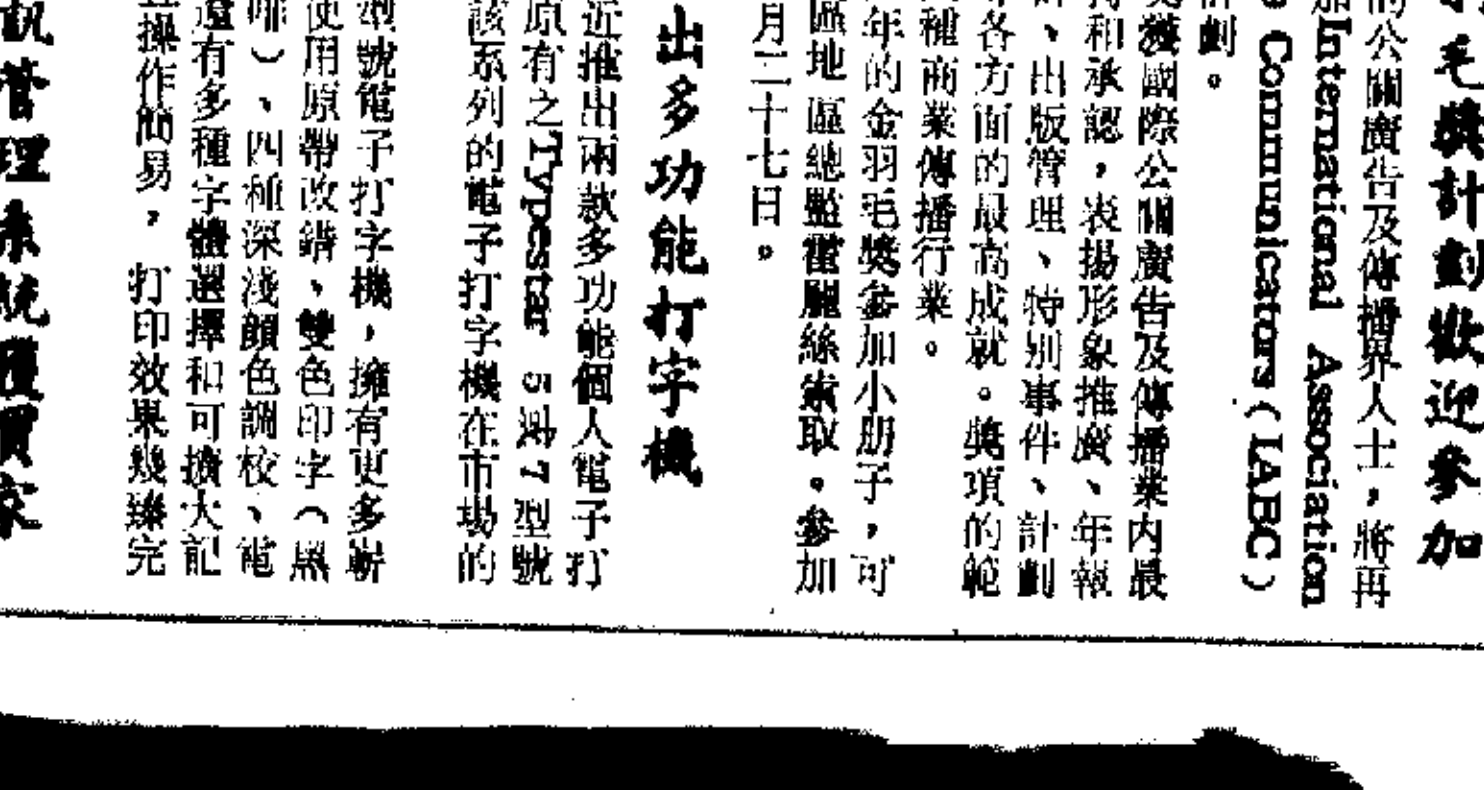 毛獎計劃歡迎參加
的公關廣告及傳播界人士，將再
加International Association
Communicators（IABC）
計劃。
獎獲國際公關廣告及傳播業内最
和承認，表揚形象推廣、年報
、出版管理、特别事件、計劃
各方面的最高成就。獎項的範
種商業傳播行業。
年的金羽毛獎參加小册子，可
區地區總監霍麗絲索取。參加
月二十七日。
出多功能打字機
近推出兩款多功能個人電子打
原有之Typestar 5或7型號
該系列的電子打字機在市場的
型號電子打字機，擁有更多嶄
使用原帶改錯、雙色印字（黑
啡）、四種深淺顏色調校、電
還有多種字體選擇和可擴大記
操作簡易，打印效果幾臻完
訊管理系統